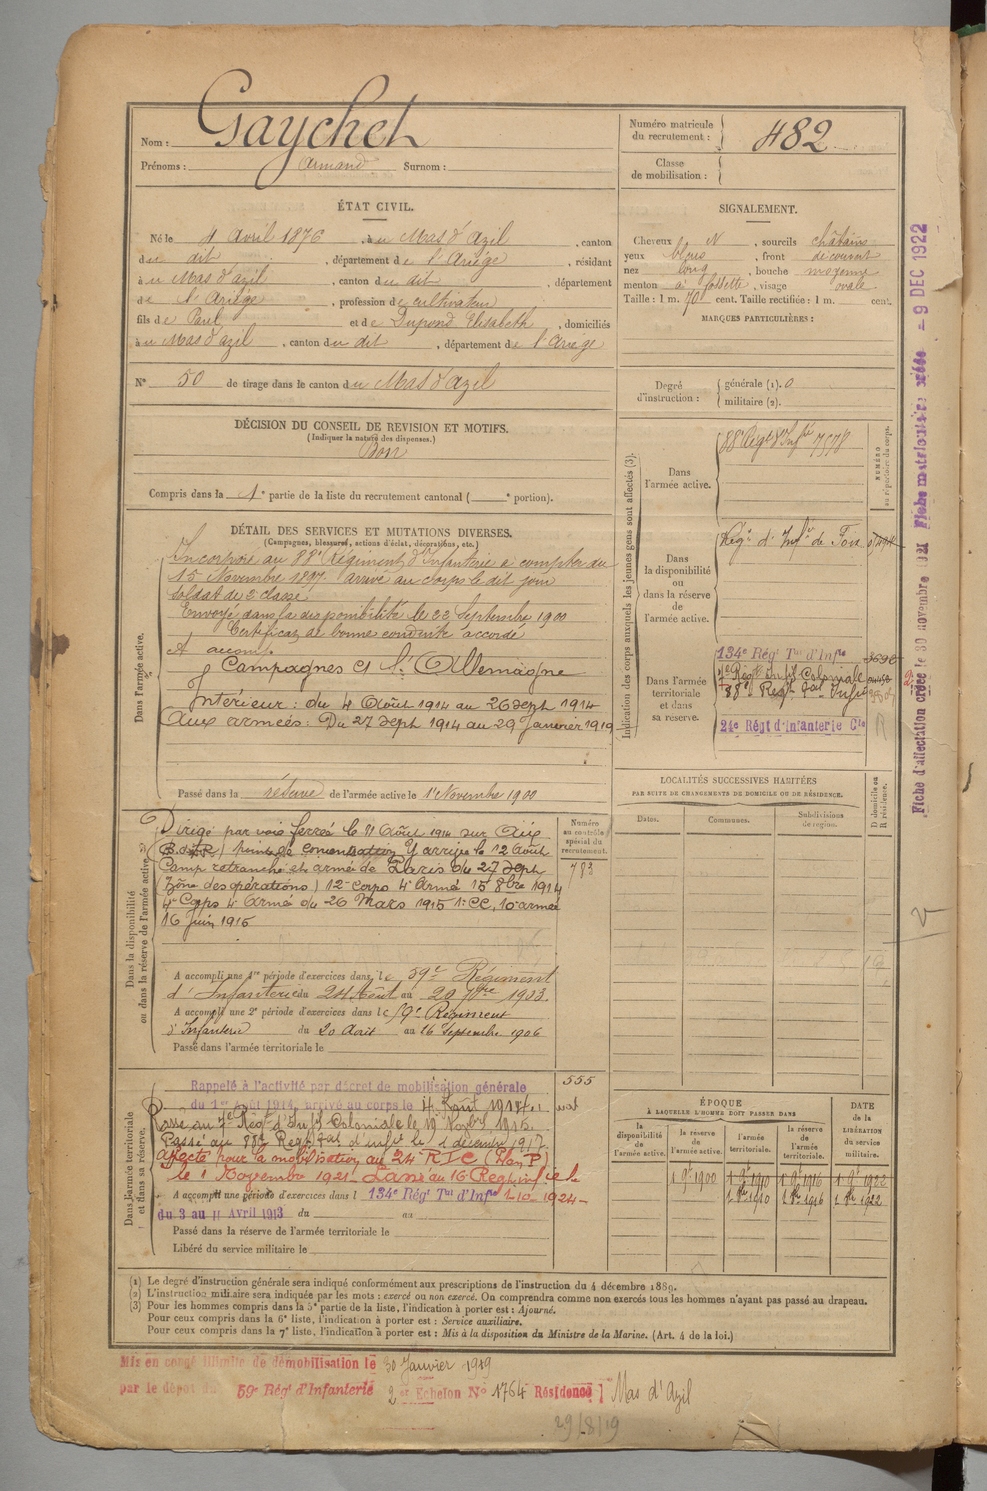 Nom : Gaychet
Prénoms : Armand Surnom :
Numéro matricule du recrutement : 482
Classe de mobilisation :
ÉTAT CIVIL.
Né le 4 Avril 1876, à u Mas d'Azil, canton
du dit, département de l'Ariège, résidant
à u Mas d'azil, canton du dit, département
de l'Ariège, profession de cultivateur
fils de Paul et de Dupond Elisabeth, domiciliés
à u Mas d'azil, canton du dit, département de l'Ariège
N° 50 de tirage dans le canton du Mas d'Azil
SIGNALEMENT.
Cheveux N, sourcils châtains
yeux bleus, front découvert
nez long, bouche moyenne
menton à fossette, visage ovale
Taille : 1 m. 70 cent. Taille rectifiée : 1 m. cent.
MARQUES PARTICULIÈRES :
Degré d'instruction : générale (1). 0
militaire (2).
DÉCISION DU CONSEIL DE REVISION ET MOTIFS.
(Indiquer la nature des dispenses.)
Bon
Compris dans la 1e partie de la liste du recrutement cantonal ( e portion).
DÉTAIL DES SERVICES ET MUTATIONS DIVERSES.
(Campagnes, blessures, actions d'éclat, décorations, etc.)
Dans l'armée active.
Incorporé au 88e Régiment d'Infanterie à compter du
15 Novembre 1897 arrivé au corps le dit jour
soldat de 2e classe
Envoyé dans la disponibilité le 22 Septembre 1900
Certificat de bonne conduite accordé
Campagnes Ct l'Allemagne
Intérieur : du 4 Août 1914 au 26 Sept 1914
Aux armées : Du 27 Sept 1914 au 29 Janvier 1919
Passé dans la réserve de l'armée active le 1er Novembre 1900
Indication des corps auxquels les jeunes gens sont affectés (3).
NUMÉRO au répertoire du corps.
Dans l'armée active.
88e Régt d'Infrie 7578
Dans la disponibilité ou dans la réserve de l'armée active.
Régt d'Infrie de Foix
Dans l'armée territoriale et dans sa réserve.
134e Régt Tal d'Infie
7e Régt Infie Coloniale
88e Regt Tal Infie
24e Régt d'Infanterie Cle
Fiche d'affectation créée le 30 novembre 1921 Fiche matriculaire créée - 9 DEC 1922
Dans la disponibilité ou dans la réserve de l'armée active.
Dirigé par voie ferrée le 11 Août 1914 sur Aix
point de concentration Y arrive le 12 Août
Camp retranché et armée de Paris du 27 Sept
(Zône des opérations) 12e corps 4e Armée 15 8bre 1914
4e Corps 4e Armée du 26 Mars 1915 1er CC, 10e armée
16 Juin 1915
Numéro au contrôle spécial du recrutement.
783
A accompli une 1re période d'exercices dans le 59e Régiment
d'Infanterie du 24 Août au 20 7bre 1903.
A accompli une 2e période d'exercices dans le 59e Régiment
d'Infanterie du 20 Août au 16 Septembre 1906
Passé dans l'armée territoriale le
LOCALITÉS SUCCESSIVES HABITÉES
PAR SUITE DE CHANGEMENTS DE DOMICILE OU DE RÉSIDENCE.
Dates. Communes. Subdivisions de région. D domicile ou R résidence.
Dans l'armée territoriale et dans sa réserve.
Rappelé à l'activité par décret de mobilisation générale
du 1er Août 1914, arrivé au corps le 4 Août 1914
555
Passé au 7e Régt d'Infie Coloniale le 19 Novbre 1915.
Passé au 88e Regt Tal d'Infie le 1 décembre 1917
Affecté pour la mobilisation au 24e RIC (Plan P)
le 1 Novembre 1921. Passé au 16 Reg
A accompli une période d'exercices dans l 134e Régt Tal d'Infie 1-10-1924-
du 3 au 11 Avril 1913 du au
Passé dans la réserve de l'armée territoriale le
Libéré du service militaire le
ÉPOQUE
À LAQUELLE L'HOMME DOIT PASSER DANS
la disponibilité de l'armée active. la réserve de l'armée active. l'armée territoriale. la réserve de l'armée territoriale.
DATE de la LIBÉRATION du service militaire.
1 9e 1900 1 9e 1910 1 9e 1916 1 9e 1922
1 8bre 1910 1 8bre 1916 1 8bre 1922
(1) Le degré d'instruction générale sera indiqué conformément aux prescriptions de l'instruction du 4 décembre 1889.
(2) L'instruction militaire sera indiquée par les mots : exercé ou non exercé. On comprendra comme non exercés tous les hommes n'ayant pas passé au drapeau.
(3) Pour les hommes compris dans la 5e partie de la liste, l'indication à porter est : Ajourné.
Pour ceux compris dans la 6e liste, l'indication à porter est : Service auxiliaire.
Pour ceux compris dans la 7e liste, l'indication à porter est : Mis à la disposition du Ministre de la Marine. (Art. 4 de la loi.)
Mis en congé illimité de démobilisation le 30 Janvier 1919
par le dépôt du 59e Régt d'Infanterie 2e Echelon N° 1764 Résidence Mas d'Azil
29/8/19